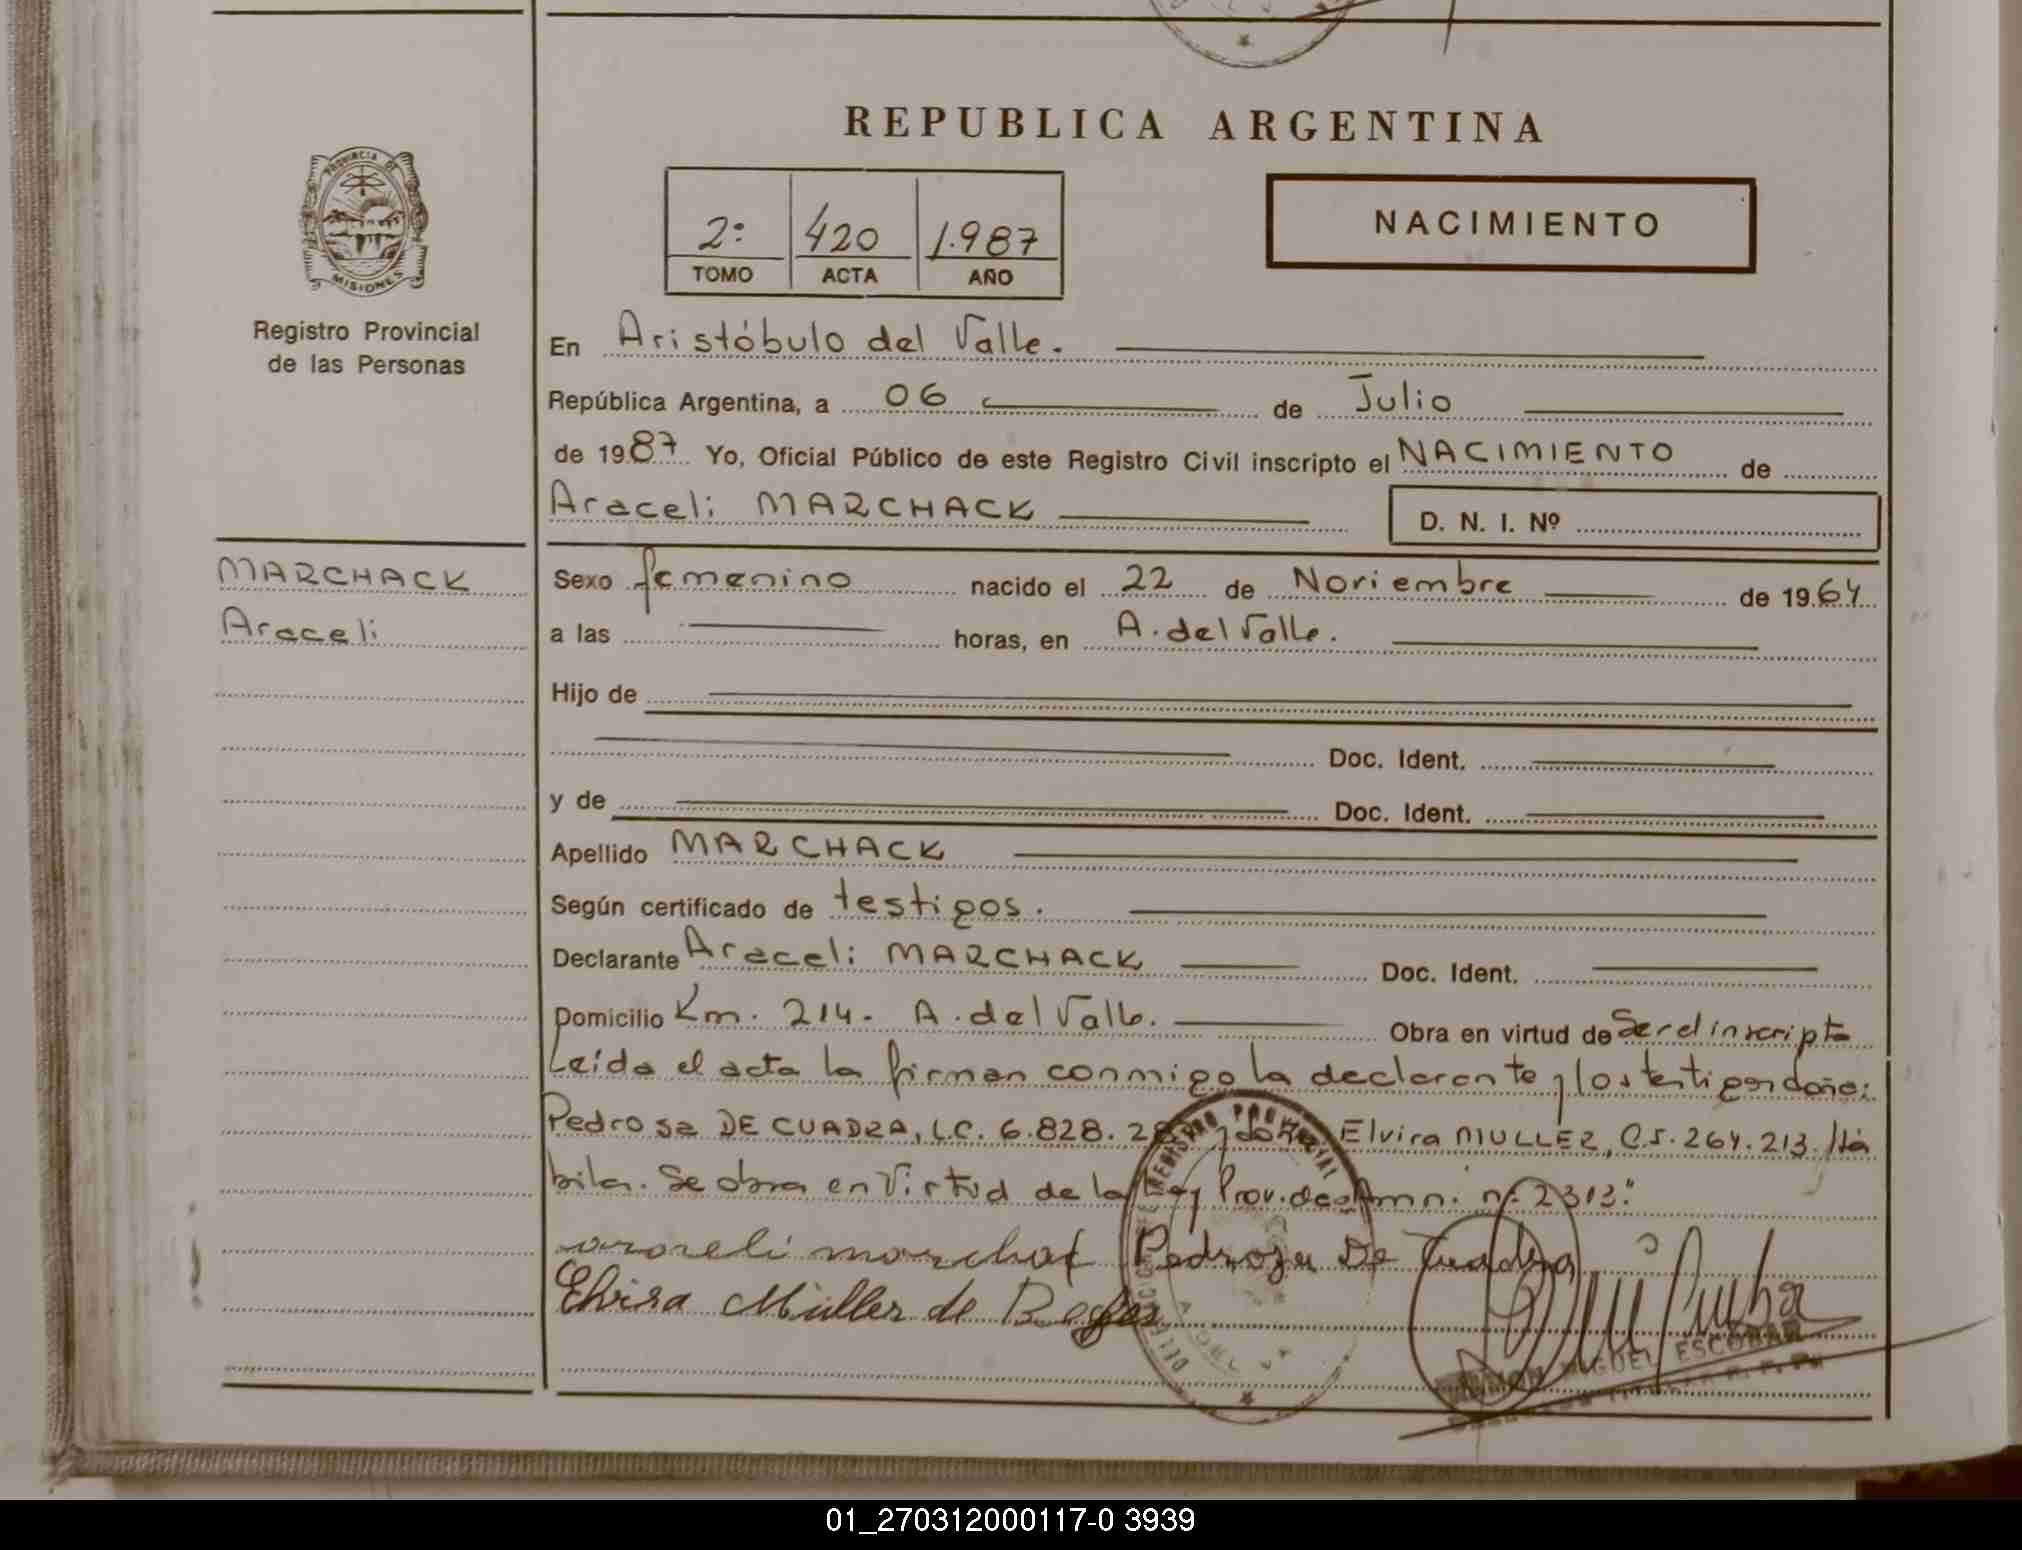 REPUBLICA ARGENTINA
PROVINCIA DE
MISIONES
2º 420 1.987
TOMO ACTA AÑO
NACIMIENTO
Registro Provincial
de las Personas
En Aristóbulo del Valle.
República Argentina, a 06 de Julio
de 1987 Yo, Oficial Público de este Registro Civil inscripto el NACIMIENTO de
Araceli MARCHACK D. N. I. Nº
MARCHACK
Araceli
Sexo femenino nacido el 22 de Noviembre de 1964
a las horas, en A. del Valle.
Hijo de
Doc. Ident.
y de Doc. Ident.
Apellido MARCHACK
Según certificado de testigos.
Declarante Araceli MARCHACK Doc. Ident.
Domicilio Km. 214. A. del Valle. Obra en virtud de Ser el inscripto
Leída el acta la firman conmigo la declarante y los testigos doña:
Pedrosa DE CUADRA, L.C. 6.828. y doña Elvira MULLER, C.I. 264.213. Há
biles. Se obra en Virtud de la Ley Prov. de Amn. nº 2313."
araceli marchak Pedrosa De Cuadra
Elvira Müller de
MIGUEL ESCOBAR
01_270312000117-0 3939